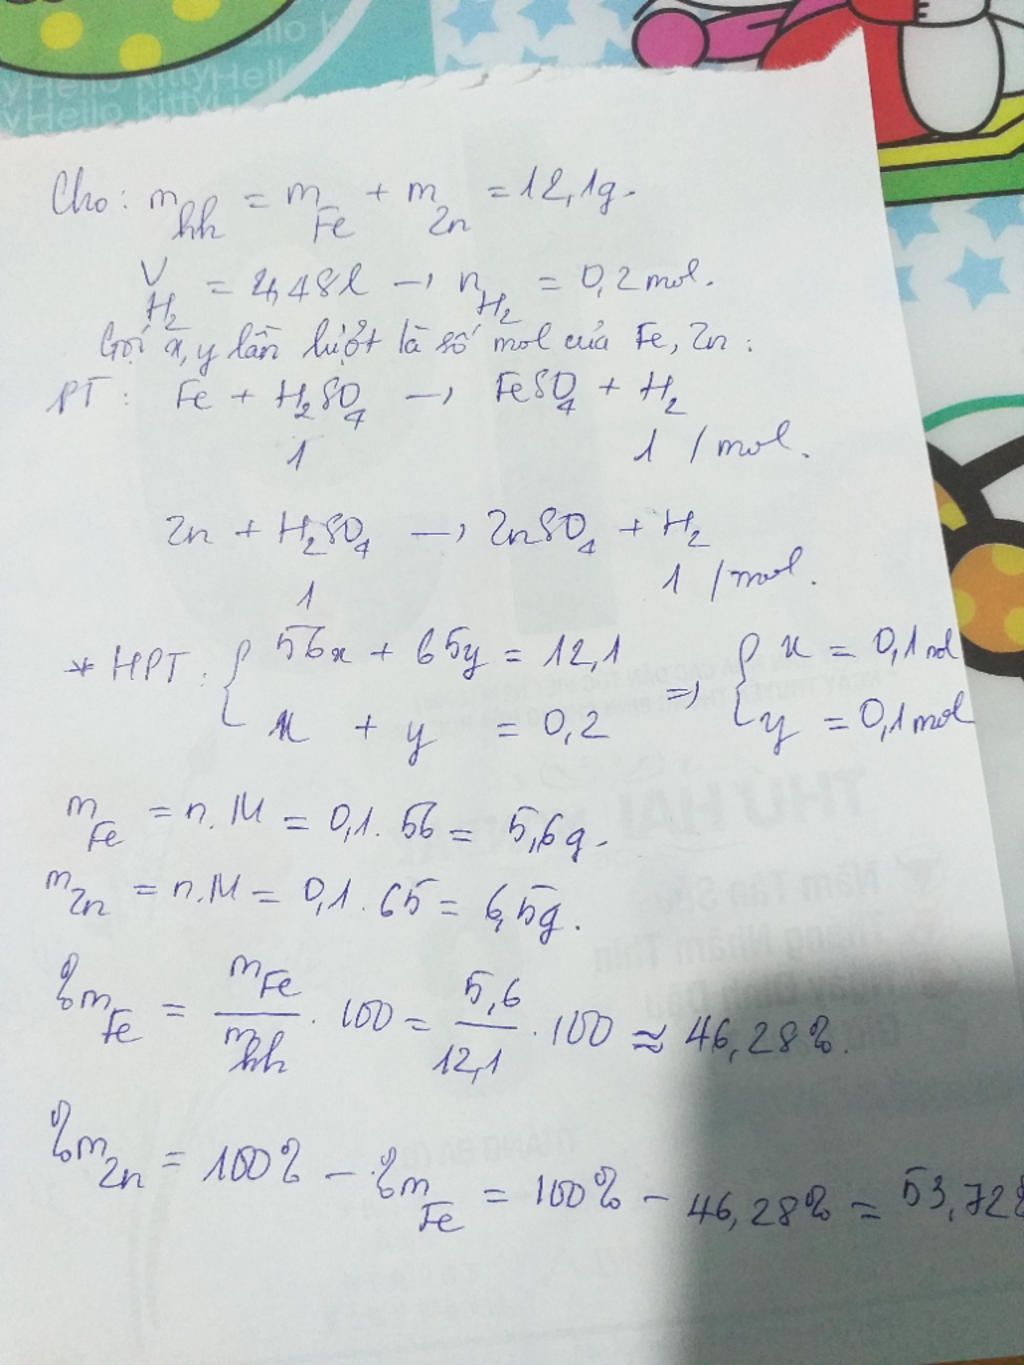 Hello k
yHello kittyHello
yHello kittyH
Cho: m hh = m Fe + m Zn = 12,1g.
V H₂ = 4,48l → n H₂ = 0,2 mol.
Gọi x, y lần lượt là số mol của Fe, Zn:
PT: Fe + H₂SO₄ → FeSO₄ + H₂
1 1 /mol.
Zn + H₂SO₄ → ZnSO₄ + H₂
1 1 /mol.
* HPT: { 56x + 65y = 12,1 => { x = 0,1 mol
x + y = 0,2 y = 0,1 mol
m Fe = n.M = 0,1. 56 = 5,6g.
m Zn = n.M = 0,1. 65 = 6,5g.
%m Fe = m Fe / m hh . 100 = 5,6 / 12,1 . 100 ≈ 46,28%.
%m Zn = 100% - %m Fe = 100% - 46,28% = 53,72%
THỨ HAI